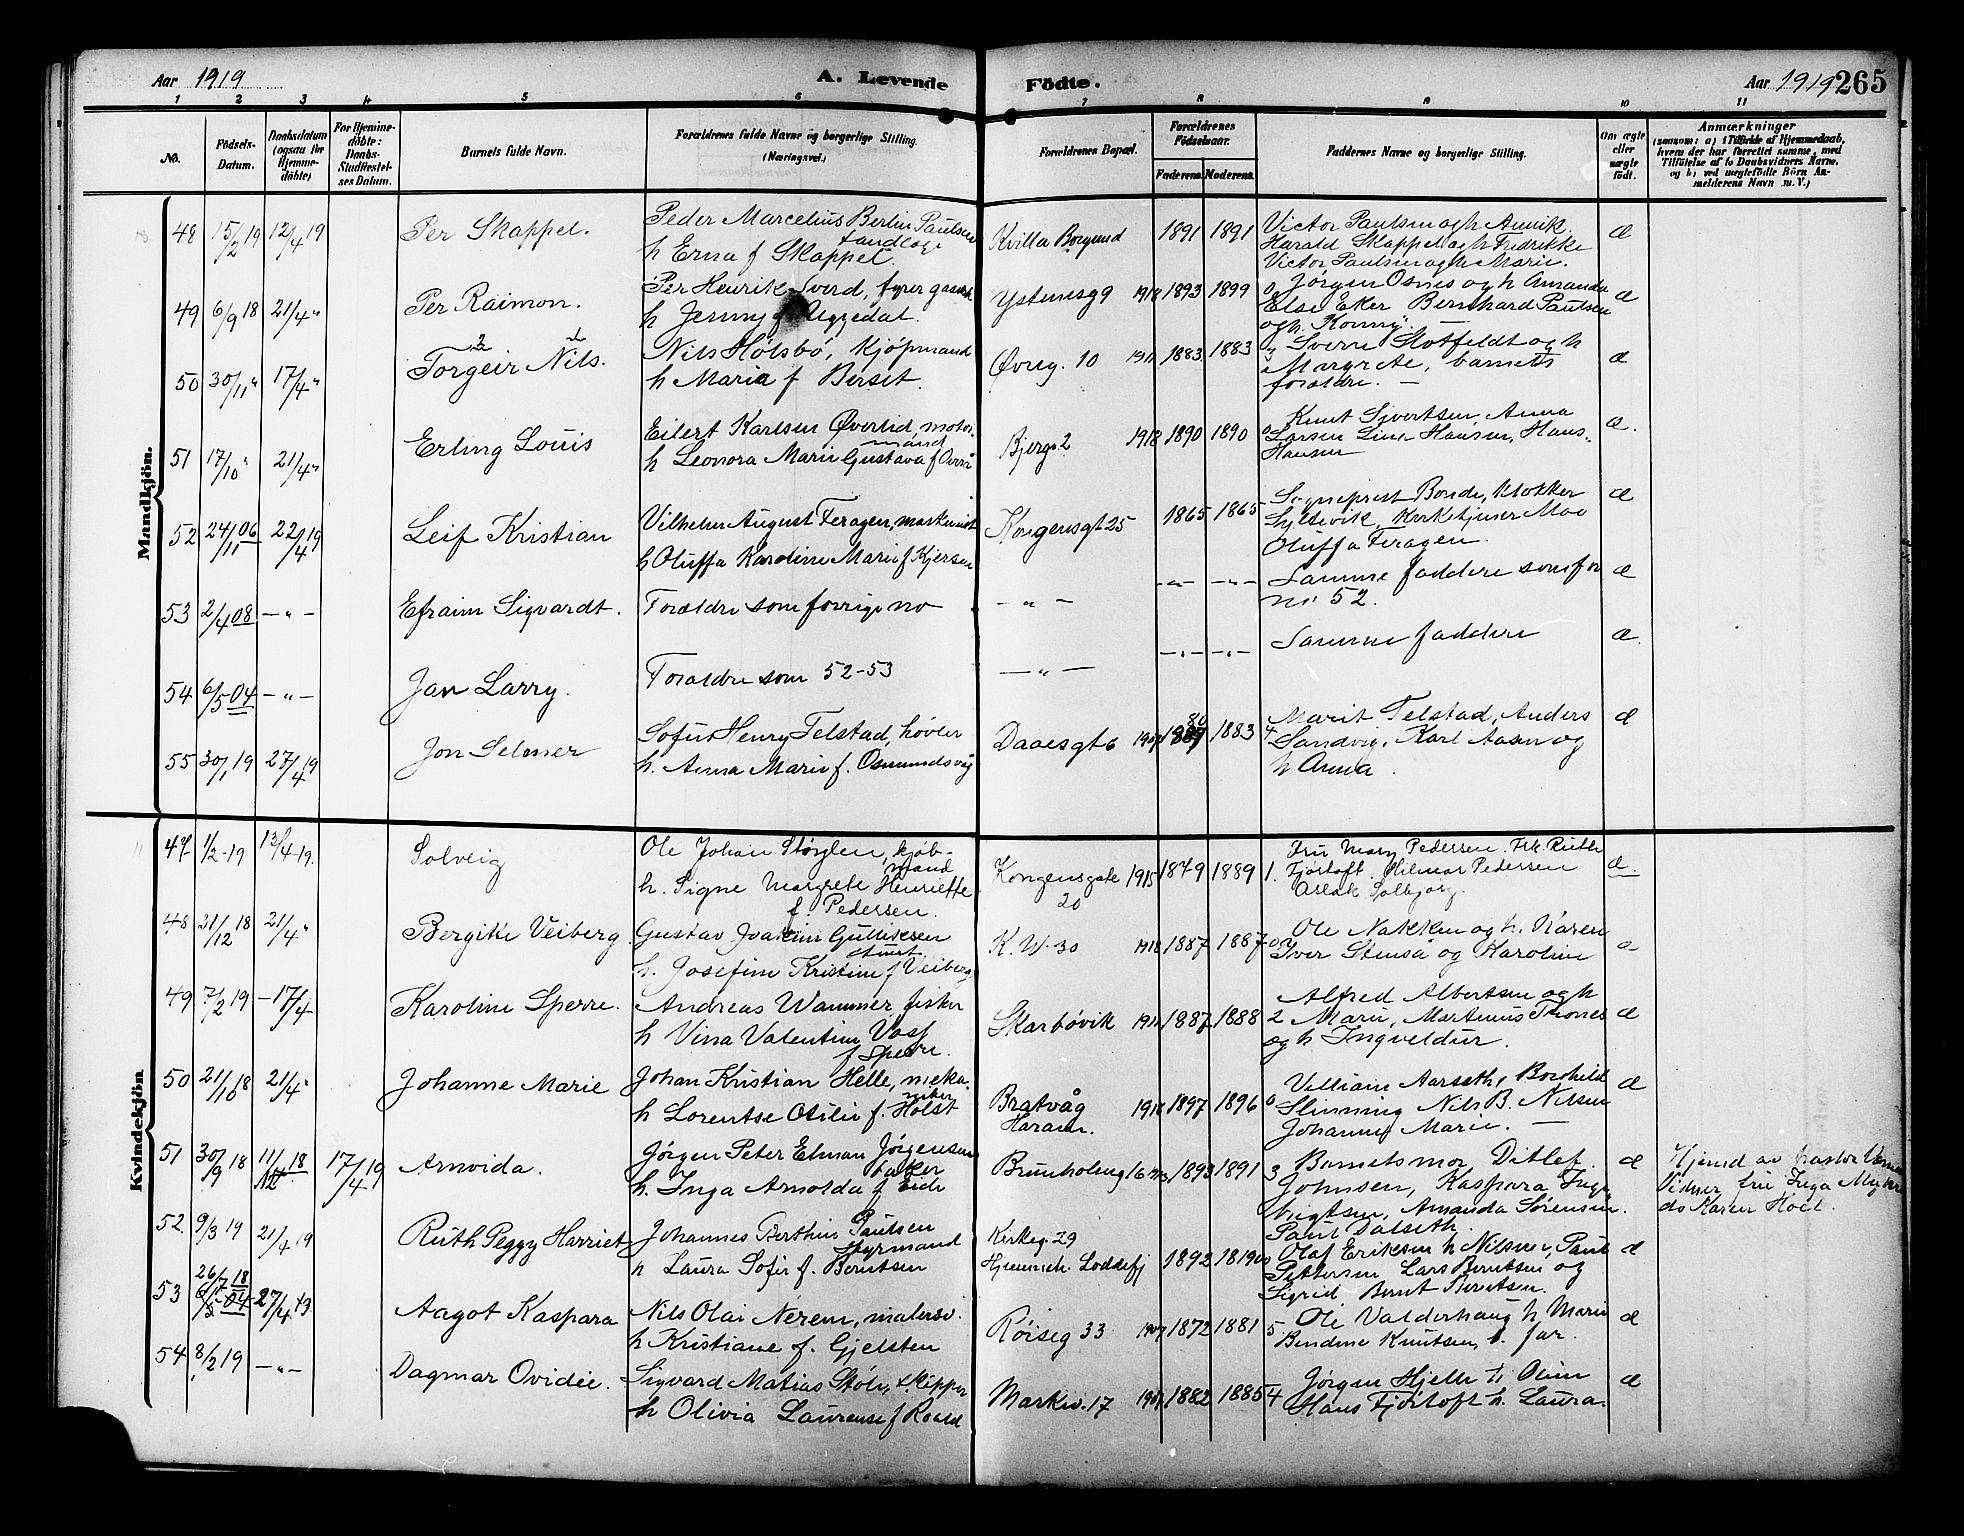 Aar 1919 A. Levende Födte. Aar 1919 265
1 2 3 4 5 6 7 8 9 10 11
No.
Födsels-Datum.
Daabsdatum (ogsaa for Hjemme-döbte)
For Hjemme-döbte: Daabs-Stadfæstel-ses Datum.
Barnets fulde Navn.
Forældrenes fulde Navne og borgerlige Stilling. (Næringsvei.)
Forældrenes Bopæl.
Forældrenes Födselsaar.
Faderens. Moderens.
Faddernes Navne og borgerlige Stilling.
Om ægte eller uægte födt.
Anmærkninger
(saasom: a) i Tilfælde af Hjemmedaab,
hvem der har forrettet samme, med
Tilföielse af to Daabsvidners Navne,
og b) ved uægtefödte Börn An-
melderens Navn m. V.)
Mandkjön.
48 15/2 19 12/4 19 Per Skappel. Peder Marcelius Berlin Paulsen
tandlæge
h Erna f Skappel. Kvilla Borgund 1891 1891 Victor Paulsen og h Annik.
Harald Skappel og h Fredrikke
Victor Paulsen og h Marie. æ
49 6/9 18 21/4 " Per Raimon. Per Henrik Sverd, fyrer gasverk
h Jenny f Uggedal. Ystenesg 9 1918 1893 1899 0 Jørgen Osnes og h Amanda
Else Eker Bernhard Paulsen
og h. Konny. æ
50 30/11 " 17/4 " Torgeir Nils. Nils Holsbö, Kjöpmand
h Maria f Berset. Øvreg. 10 1911 1883 1883 3 Sverre Slotfeldt og h
Margrete, barnets
forældre. — æ
51 17/10 " 21/4 " Erling Louis Eilert Karlsen Øverlid, motor-
mand
h Leonora Marie Gustava f Overå Bjergg 2 1918 1890 1890 0 Knut Sjvertsen, Anna
Larsen Line Hansen, Hans
Hansen æ.
52 24/11 06 22/4 19 Leif Kristian Vilhelm August Feragen, maskinist
h Oluffa Karoline Marie f Kjersen Kongensgt 25 1865 1865 Sogneprest Bonde, klokker
Syltevik, Kirketjener Moe
Oluffa Feragen. æ
53 2/4 08 — " — Efraim Sigvardt. Forældre som forrige no — " — — " — — " — Samme faddere som for
no 52. æ
54 6/5 04 — " — Jan Larry. Forældre som 52-53 — " — — " — — " — Samme faddere æ
55 30/1 19 27/4 19 Jon Selmer Sofus Henry Telstad, høvler
h. Anna Marie f. Osmundsvåg Daaesgt 6 1909 1880 1883 4 Marit Telstad, Anders
Sandvig, Karl Aasen og
h Anna. æ
Kvindekjön
47 1/2 -19 13/4 -19. Solveig Ole Johan Størylen, kjøb-
mand
h. Signe Margrete Henriette
f. Pedersen. Kongensgate
20 1915 1879 1889 1. Fru Mary Pedersen. Frk. Ruth
Fjørtoft. Hilmar Pedersen
Aslak Solbjørg. æ
48 31/12 18 21/4 " Bergike Veiberg. Gustav Joakim Gulliksen
stuert
h. Josefine Kristine f Veiberg K. W. 30 1918 1887 1887 0 Ole Nakken og h. Karen
Iver Stenså og Karoline æ
49 7/2 19 - 17/4 Karoline Sperre. Andreas Wammer, fisker
h Vina Valentine Vass
f Sperre. Skarbövik 1911 1887 1888 2 Alfred Albertsen og h
Marie, Martinus Trones
og h Ingveldur. æ
50 21/10 18 21/4 " Johanne Marie Johan Kristian Helle, meka-
niker
h Lorentse Otilie f. Holst Bratvåg
Haram. 1918 1897 1896 0 Villiam Aarseth, Borghild
Slinning Nils B. Nilsen
Johanne Marie. — æ
51 30/9 18 11/12 18 17/4 19 Arnvida. Jørgen Peter Elman Jørgensen
baker
h. Inga Arnolda f Eide Brunholmg 16 1913 1893 1891 3 Barnets mor Ditlef
Johnsen, Kaspara Inge-
brigtsen, Amanda Sørensen.
Paul Dalseth. æ Hjemd av Pastor
Vidner fru Inga
do Karen Hoel.
52. 9/3 19 21/4 19 Ruth Peggy Harriet Johannes Berthin Paulsen
styrmand
h Laura Sofie f. Berntsen Kirkeg. 29
1892 1890 Olaf Eriksen h Nilsine, Paul
Pettersen Lars Berntsen og
Sigrid Bernt Berntsen. æ
53 26/7 18 27/4 19 Aagot Kaspara Nils Olai Nerem, malersv.
h Kristiane f. Gjelsten Röiseg 33 1907 1872 1881 5 Ole Valderhaug h Marie
Bendine Knutsen, b. far. æ
54 8/2 19 — " — Dagmar Ovidie. Sigvard Matias Støle, skipper
h Olivia Laurense f Roald Markv. 17 1909 1882 1885 4 Jørgen Hjelle h Oline
Hans Fjörtoft h. Laura. æ